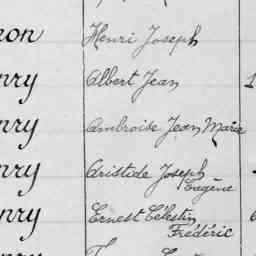 ron Henri Joseph
nry Albert Jean 1
nry Ambroise Jean Marie
nry Aristide Joseph
Eugène
nry Ernest Célestin
Frédéric